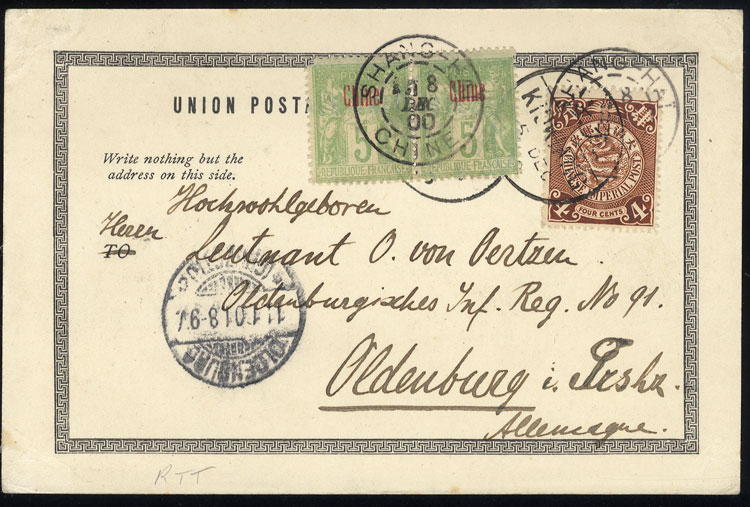 UNION POSTA
Write nothing but the
address on this side.
Chine
Chine
5
5
REPUBLIQUE FRANÇAISE
REPUBLIQUE FRANÇAISE
SHANG-HAI
8
DEC
00
CHINE
SHANG-HAI
DEC
CHINESE IMPERIAL POST
FOUR CENTS
4
Hochwohlgeboren
Herrn
TO
Leutnant O. von Oertzen
Oldenburgisches Inf. Reg. No 91.
Oldenburg i. Grshz.
Allemagne.
OLDENBURG
11.1.01.8-9V.
RTT